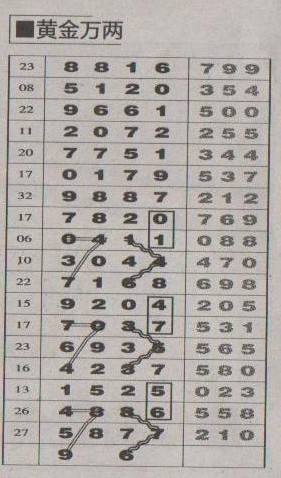 ■黄金万两
23 8 8 1 6 7 9 9
08 5 1 2 0 3 5 4
22 9 6 6 1 5 0 0
11 2 0 7 2 2 5 5
20 7 7 5 1 3 4 4
17 0 1 7 9 5 3 7
32 9 8 8 7 2 1 2
17 7 8 2 0 7 6 9
06 0 4 1 1 0 8 8
10 3 0 4 4 4 7 0
22 7 1 6 8 6 9 8
15 9 2 0 4 2 0 5
17 7 0 3 7 5 3 1
23 6 9 3 8 5 6 5
16 4 2 3 7 5 8 0
13 1 5 2 5 0 2 3
26 4 8 8 6 5 5 8
27 5 8 7 7 2 1 0
9 6